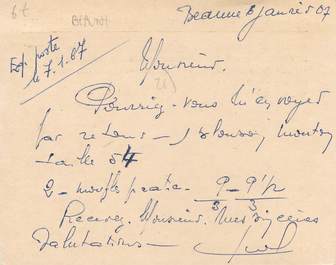 Beaune 6 Janvier 87
Exp. poste
le 7.1.87
Monsieur.
Pourriez-vous m'envoyer
par retour - 1 blouson mouton
taille 54
2 - moufle 9 - 9 1/2
3 3
Recevez. Monsieur. Mes sincères
Salutations -